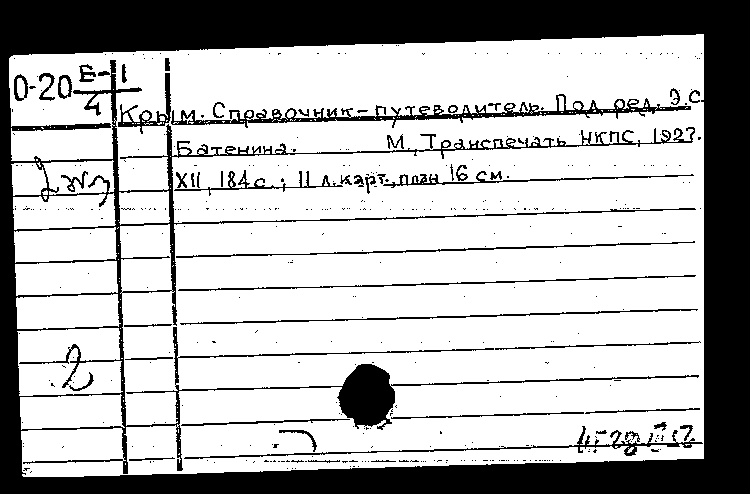 О-20 Е-1
4
Крым. Справочник-путеводитель. Под ред. Э.С.
Батенина. М., Транспечать НКПС, 1927.
XII, 184 с.; 11 л. карт., план. 16 см.
2